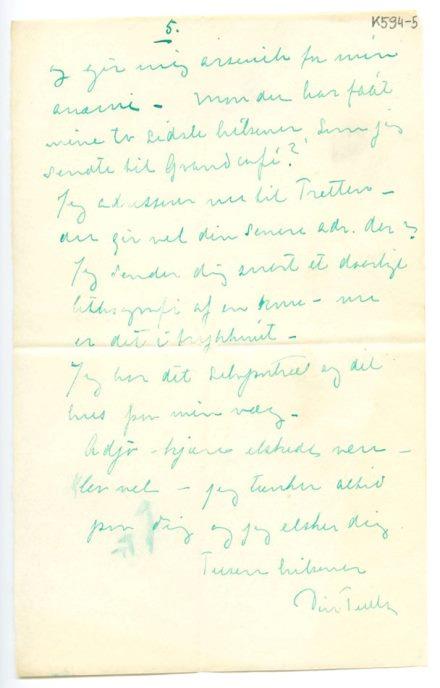 5.
K594-5
og gir mig arsenik for min
anæmi – Mon du har fåat
mine to sidste hilsener, som jeg
sendte til Grand café?
Jeg adresserer nu til Tretten –
du gir vel din senere adr. der?
Jeg sender dig snart et daarlig
lithografi af en – nu
er det i trykkeriet –
Jeg har dit selvportræt og dit
hus paa min væg –
Adjø – kjære elskede ven –
lev vel – jeg tænker altid
paa dig og jeg elsker dig.
Tusen hilsener
Din Tulla